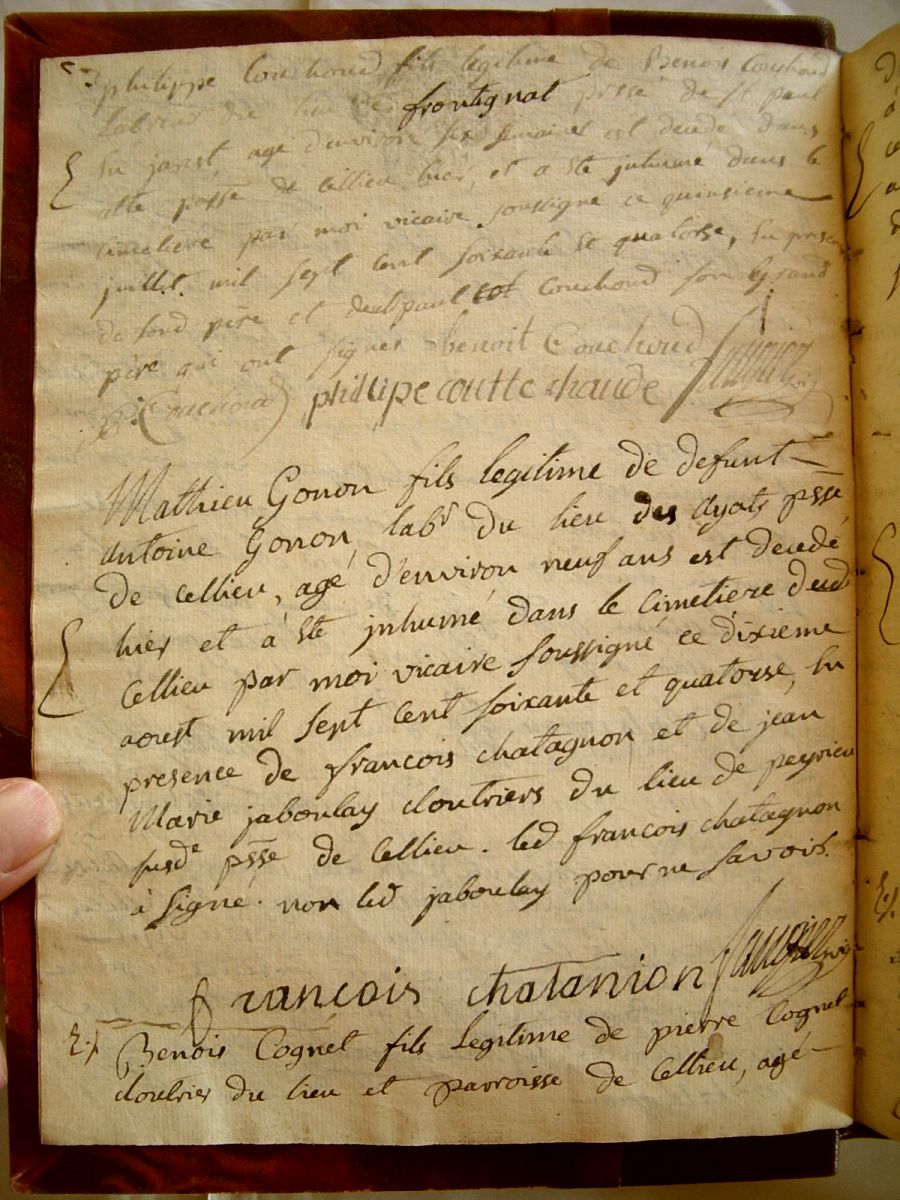 philippe Couchoud fils legitime de Benoit Couchoud
du lieu de frontignat psse de st paul
En jarest agé d'environ six semaines est decedé dans
cette psse de Cellieu hier, et a Ete inhumé dans le
cimetiere par moi vicaire soussigné ce quinsieme
juillet mil sept cent soixante et quatorse, En presence
de sond père et de paul Couchoud son Grand
père qui ont signés benoit Couchoud
Couchoud philippe coutte chaude
Mathieu Gonon fils legitime de defunt
antoine Gonon labr du lieu des ayats psse
de cellieu, agé d'environ neuf ans est decedé
hier et à Ete inhumé dans le cimetiere dud
Cellieu par moi vicaire soussigné ce dixieme
aoust mil sept cent soixante et quatorse, En
presence de francois chatagnon et de jean
Marie jaboulay cloutriers du lieu de peyrieu
susde psse de Cellieu. led francois chatagnon
à signé. non led jaboulay pour ne savoir.
francois chatanion
Benois Cognet fils Legitime de pierre Cognet
cloutrier du lieu et parroisse de Cellieu, agé